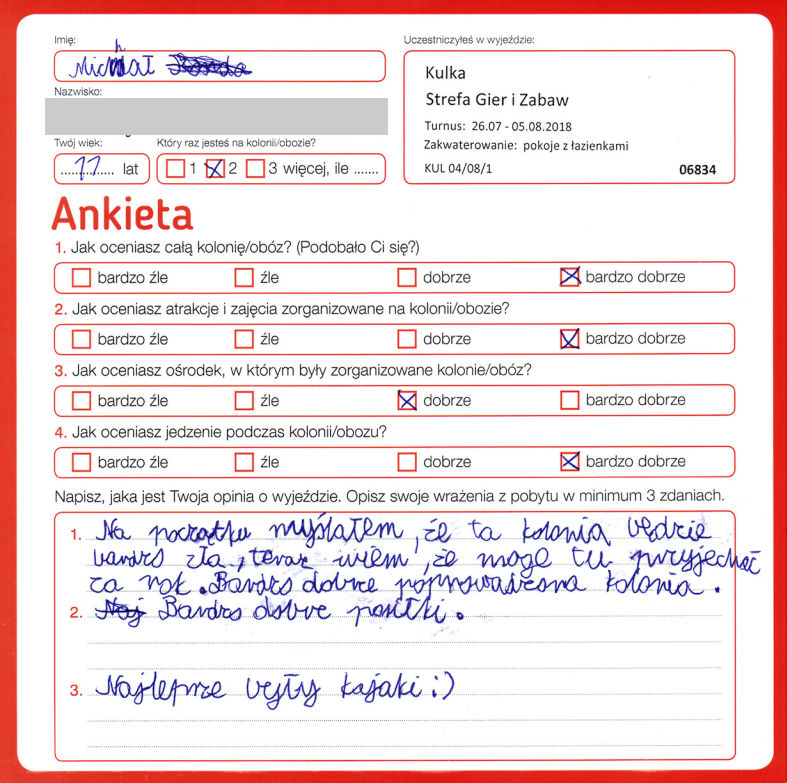 Imię:
Michał
Nazwisko:
Twój wiek:
11 lat
Który raz jesteś na kolonii/obozie?
1 2 3 więcej, ile .......
Uczestniczyłeś w wyjeździe:
Kulka
Strefa Gier i Zabaw
Turnus: 26.07 - 05.08.2018
Zakwaterowanie: pokoje z łazienkami
KUL 04/08/1 06834
Ankieta
1. Jak oceniasz całą kolonię/obóz? (Podobało Ci się?)
bardzo źle źle dobrze bardzo dobrze
2. Jak oceniasz atrakcje i zajęcia zorganizowane na kolonii/obozie?
bardzo źle źle dobrze bardzo dobrze
3. Jak oceniasz ośrodek, w którym były zorganizowane kolonie/obóz?
bardzo źle źle dobrze bardzo dobrze
4. Jak oceniasz jedzenie podczas kolonii/obozu?
bardzo źle źle dobrze bardzo dobrze
Napisz, jaka jest Twoja opinia o wyjeździe. Opisz swoje wrażenia z pobytu w minimum 3 zdaniach.
1. Na początku myślałem, że ta kolonia będzie
bardzo zła, teraz wiem, że mogę tu przyjechać
za rok. Bardzo dobrze poprowadzona kolonia.
2. Bardzo dobre posiłki.
3. Najlepsze były kajaki :)